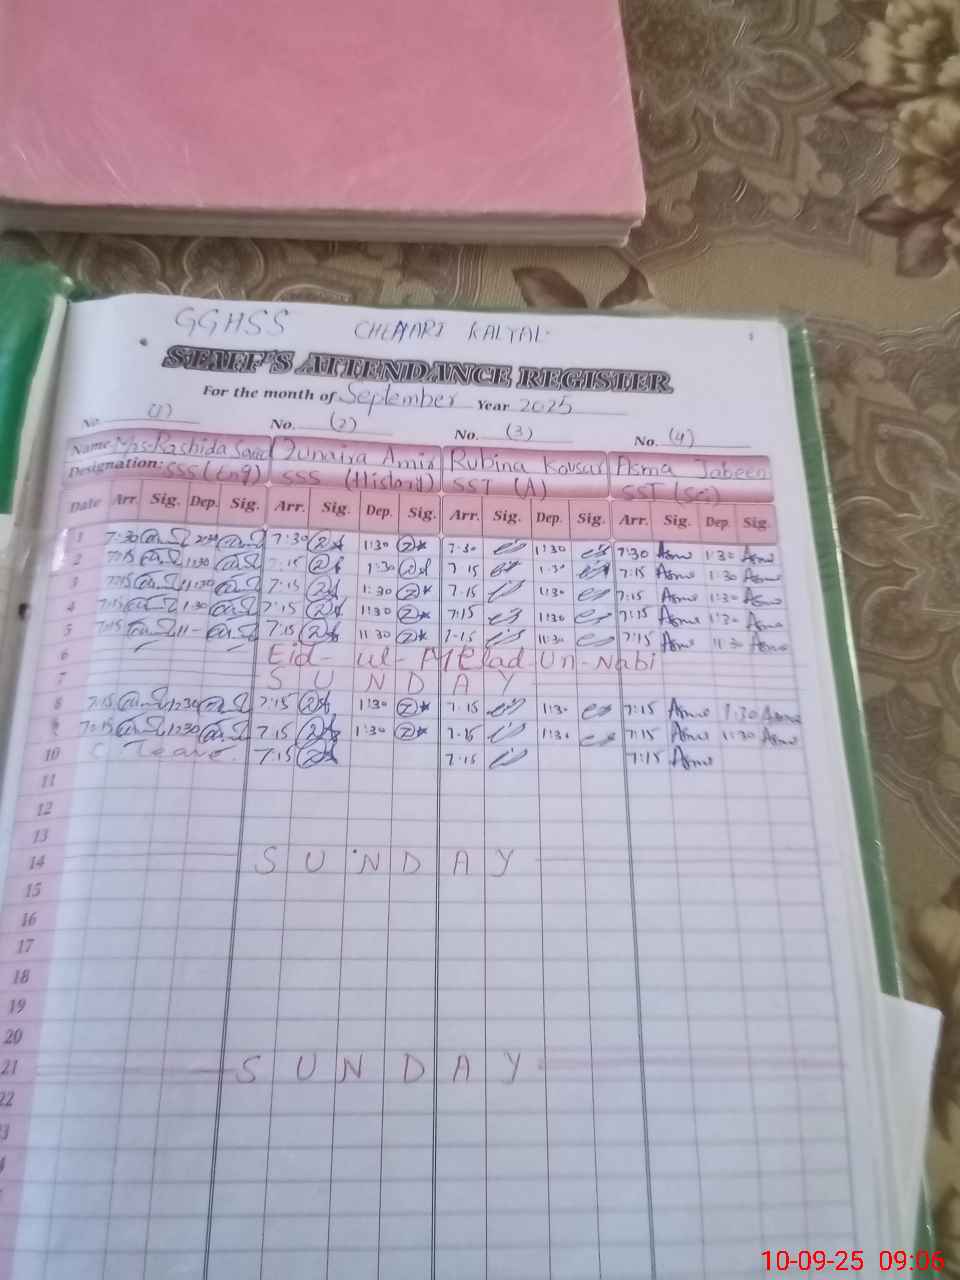 GGHSS CHENARI KALYAL
1
STAFF'S ATTENDANCE REGISTER
For the month of September Year 2025
No. (1) No. (2) No. (3) No. (4)
Name Mrs. Rashida Zunaira Amir Rubina Kousar Asma Jabeen
Designation: SSS (Eng) SSS (History) SST (A) SST (Sci)
Date Arr. Sig. Dep. Sig. Arr. Sig. Dep. Sig. Arr. Sig. Dep. Sig. Arr. Sig. Dep. Sig.
1 7:30 7:30 1:30 7:30 1:30 7:30 Asma 1:30 Asma
2 7:15 1:30 7:15 1:30 7:15 1:30 7:15 Asma 1:30 Asma
3 7:15 1:30 7:15 1:30 7:15 1:30 7:15 Asma 1:30 Asma
4 7:15 1:30 7:15 1:30 7:15 1:30 7:15 Asma 1:30 Asma
5 7:15 7:15 11:30 7:15 11:30 7:15 Asma 11:30 Asma
6 Eid-ul-Milad-Un-Nabi
7 SUNDAY
8 7:15 7:15 1:30 7:15 1:30 7:15 Asma 1:30 Asma
9 7:15 7:15 1:30 7:15 1:30 7:15 Asma 1:30 Asma
10 C Leave. 7:15 7:15 7:15 Asma
11
12
13
14 SUNDAY
15
16
17
18
19
20
21 SUNDAY
22
10-09-25 09:06